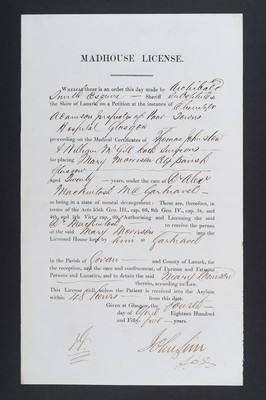 MADHOUSE LICENSE.
WHEREAS there is an order this day made by Archibald
Smith Esquire — Sheriff Substitute of
the Shire of Lanark, on a Petition at the instance of
Adamson of Poor Towns
Hospital Glasgow
proceeding on the Medical Certificates of Thomas Johnston
& William McGill both Surgeons
for placing Mary Morrison City Parish
Glasgow
years, under the care of Dr Alexr
Mackintosh M.D. Gartnavel —
as being in a state of mental derangement: These are, therefore, in
terms of the Acts 55th Geo. III., cap. 69, 9th Geo. IV., cap. 34, and
4th and 5th Vict., cap. 60, authorising and Licensing the said
Dr Mackintosh to receive the person
of the said Mary Morrison into the
Licensed House kept by him at Gartnavel
in the Parish of Govan — and County of Lanark, for
the reception, and the care and confinement, of Furious and Fatuous
Persons and Lunatics, and to detain the said Mary Morrison
— therein, according to Law.
This License null, unless the Patient is received into the Asylum
within 48 hours — from this date.
Given at Glasgow, the fourth —
day of April Eighteen Hundred
and Fifty — years.